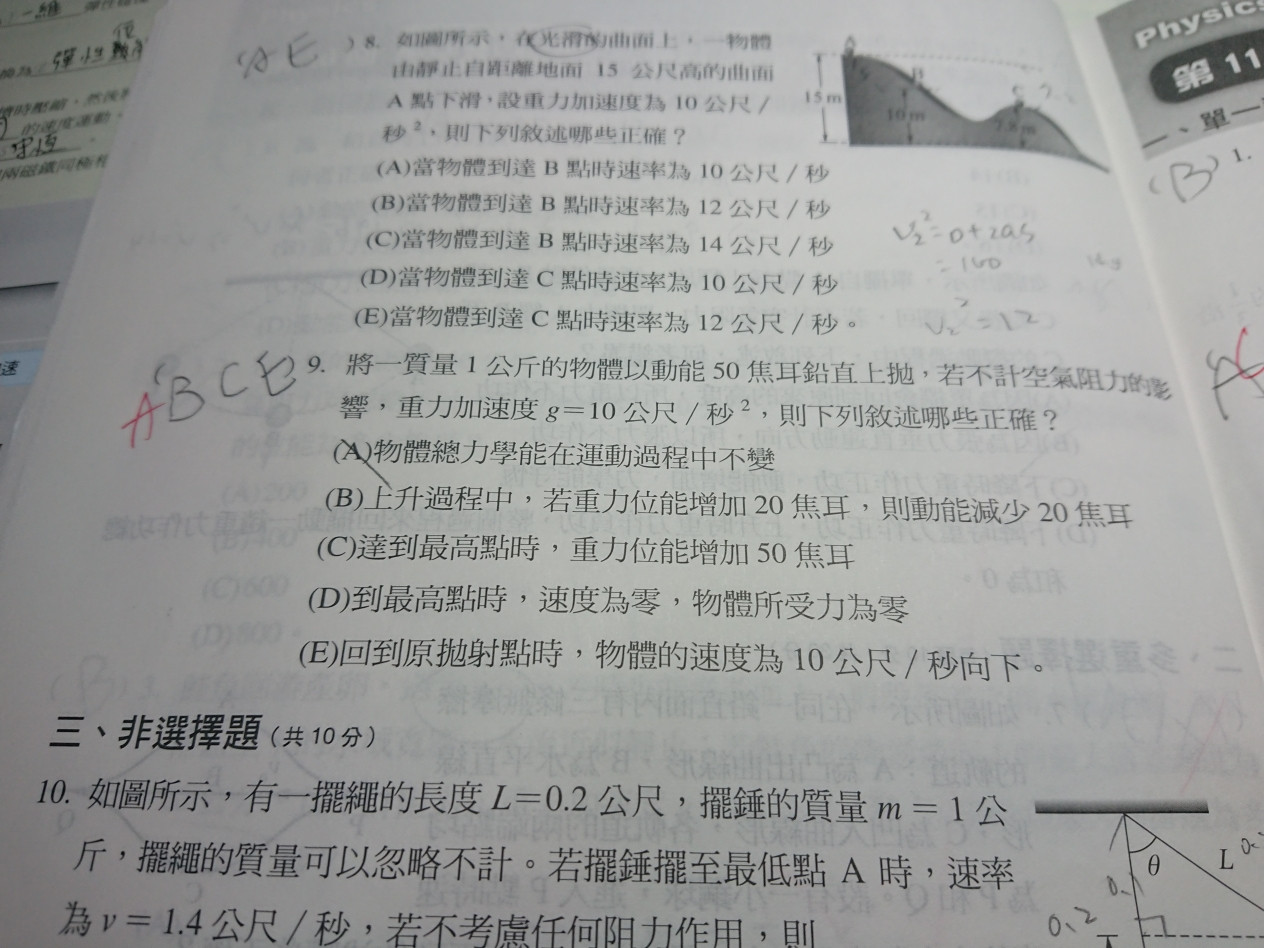 一維
彈性
(AE)8. 如圖所示，在光滑的曲面上，一物體
由靜止自距離地面 15 公尺高的曲面
A 點下滑，設重力加速度為 10 公尺／
秒²，則下列敘述哪些正確？
(A)當物體到達 B 點時速率為 10 公尺／秒
(B)當物體到達 B 點時速率為 12 公尺／秒
(C)當物體到達 B 點時速率為 14 公尺／秒
(D)當物體到達 C 點時速率為 10 公尺／秒
(E)當物體到達 C 點時速率為 12 公尺／秒。
A
B
C
15 m
10 m
V₂²=0+2as
ABCE 9. 將一質量 1 公斤的物體以動能 50 焦耳鉛直上拋，若不計空氣阻力的影
響，重力加速度 g＝10 公尺／秒²，則下列敘述哪些正確？
(A)物體總力學能在運動過程中不變
(B)上升過程中，若重力位能增加 20 焦耳，則動能減少 20 焦耳
(C)達到最高點時，重力位能增加 50 焦耳
(D)到最高點時，速度為零，物體所受力為零
(E)回到原拋射點時，物體的速度為 10 公尺／秒向下。
三、非選擇題（共 10 分）
10. 如圖所示，有一擺繩的長度 L＝0.2 公尺，擺錘的質量 m = 1 公
斤，擺繩的質量可以忽略不計。若擺錘擺至最低點 A 時，速率
為 v = 1.4 公尺／秒，若不考慮任何阻力作用，則
θ
L
0.2
Physics
第 11
一、單一
(B) 1.